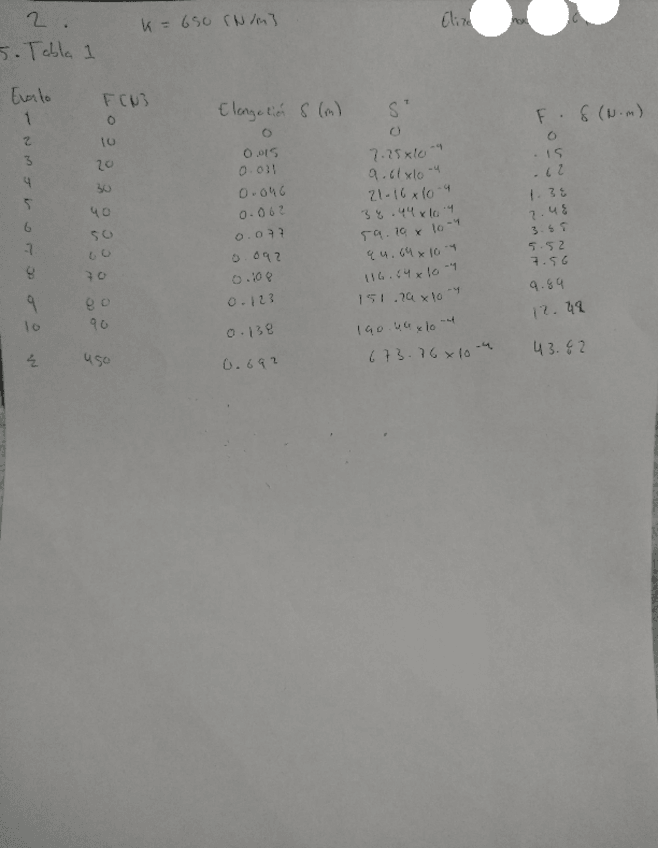 2. K = 650 [N/m]
5. Tabla 1
Evento F[N] Elongación δ (m) δ² F · δ (N·m)
1 0 0 0 0
2 10 0.015 2.25x10⁻⁴ .15
3 20 0.031 9.61x10⁻⁴ .62
4 30 0.046 21.16x10⁻⁴ 1.38
5 40 0.062 38.44x10⁻⁴ 2.48
6 50 0.077 59.29x10⁻⁴ 3.85
7 60 0.092 84.64x10⁻⁴ 5.52
8 70 0.108 116.64x10⁻⁴ 7.56
9 80 0.123 151.29x10⁻⁴ 9.84
10 90 0.138 190.44x10⁻⁴ 12.42
Σ 450 0.692 673.76x10⁻⁴ 43.82